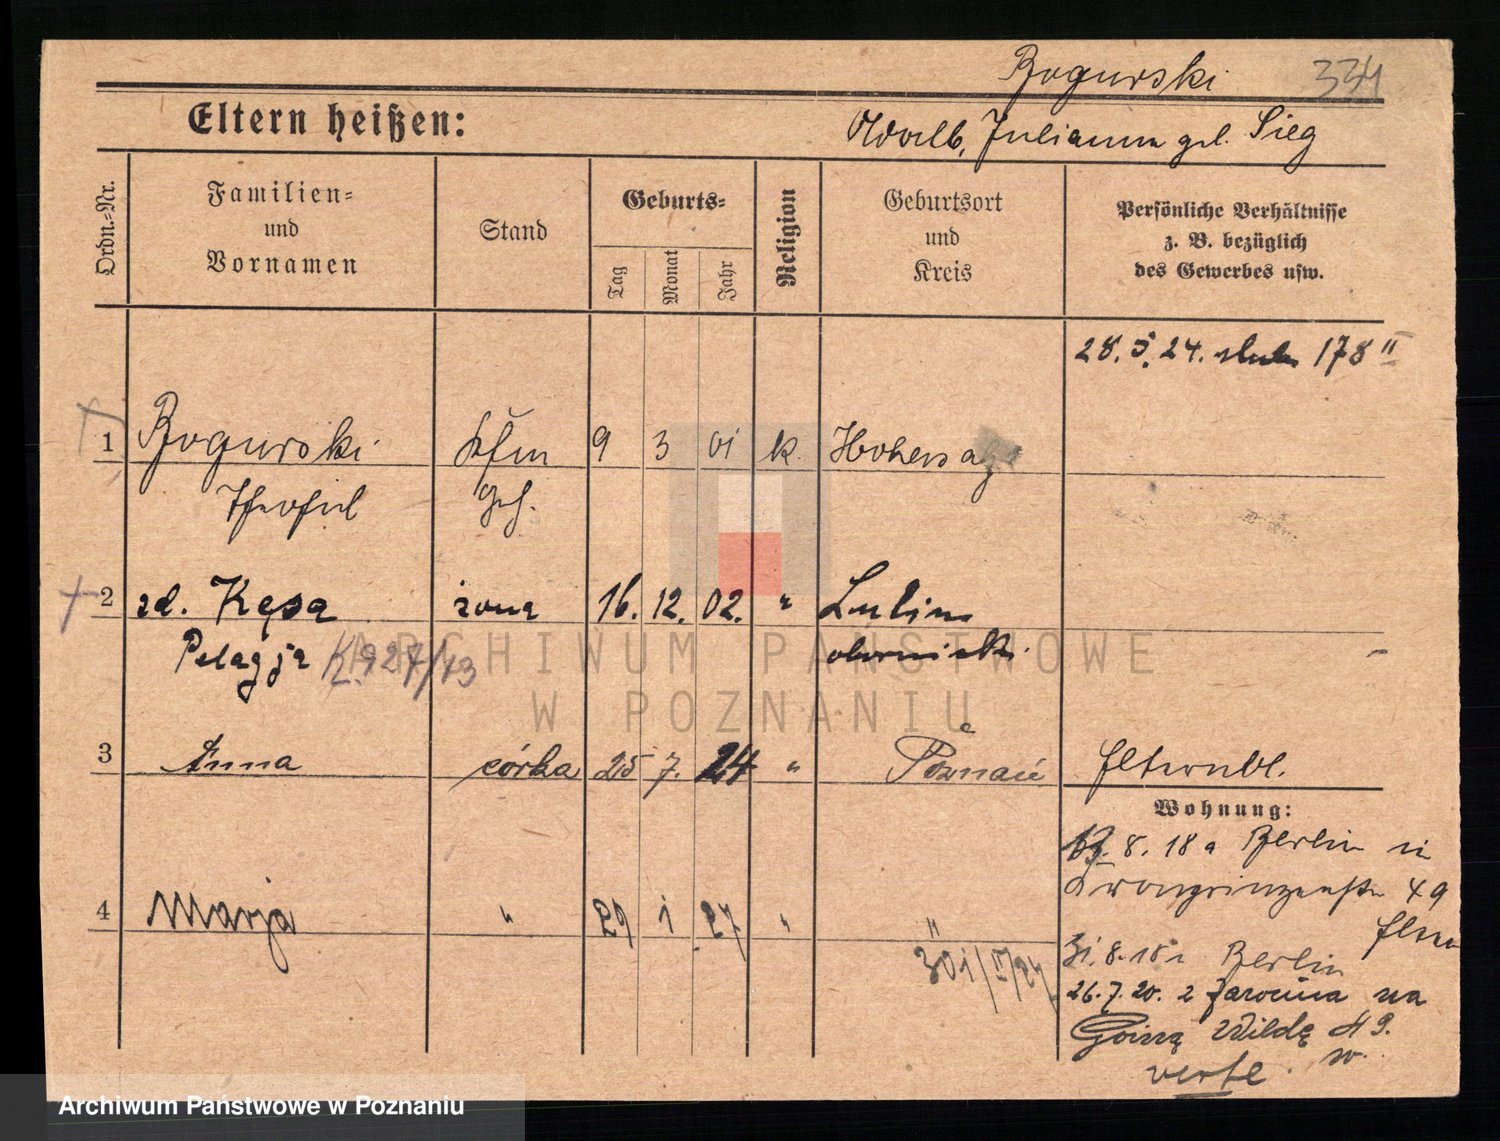 Bogurski 334
Eltern heißen: Adalb, Julianna geb. Sieg
Ordn.=Nr.
Familien=
und
Vornamen
Stand
Geburts=
Tag
Monat
Jahr
Religion
Geburtsort
und
Kreis
Persönliche Verhältnisse
z. B. bezüglich
des Gewerbes usw.
28. 5. 24. ślub 178 II
1 Bogurski Kfm 9 3 01 k. Hohensalza
Theofil Geh.
2 zd. Kęsa żona 16. 12. 02. " Lulin
Pelagja K. 927/13 obornicki.
3 Anna córka 25 7. 24 " Poznań Elternbl.
Wohnung:
13. 8. 18 a Berlin in
Kronprinzenstr 49
Eltern
4 Marja " 29 1 27 " "
301/II/27
31. 8. 18 n Berlin
26. 7. 20. z Jarocina na
Górną Wildę 49.
w.
verte
ARCHIWUM PAŃSTWOWE
W POZNANIU
Archiwum Państwowe w Poznaniu